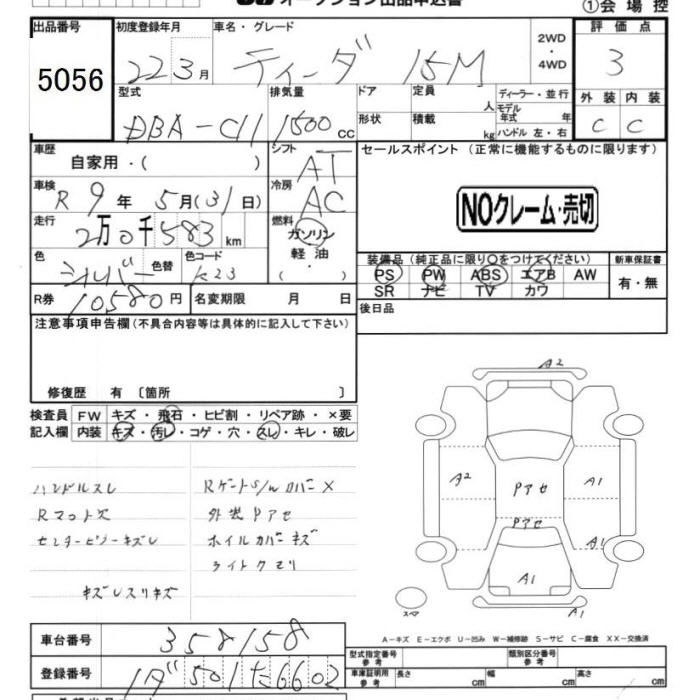 オークション出品申込書
①会場控
出品番号 初度登録年月 車名・グレード 評価点
5056 22 3月 ティーダ 15M 2WD・4WD 3
型式 排気量 ドア 定員 人 ディーラー・並行
モデル年式 年
外装 内装
DBA-C11 1500cc 形状 積載 kg ハンドル 左・右 C C
車歴 自家用・( ) シフト AT セールスポイント (正常に機能するものに限ります)
車検 R9年 5月(31日) 冷房 AC
NOクレーム・売切
走行 2万0千583km 燃料 ガソリン
軽油
( )
色 シルバー 色替 色コード K23
装備品 (純正品に限り○をつけてください) 新車保証書
PS PW ABS エアB AW 有・無
SR ナビ TV カワ
R券 10580円 名変期限 月 日
後日品
注意事項申告欄(不具合内容等は具体的に記入して下さい)
修復歴 有 〔箇所 〕
検査員 FW キズ・飛石・ヒビ割・リペア跡・×要
記入欄 内装 キズ・汚レ・コゲ・穴・スレ・キレ・破レ
ハンドルスレ RゲートS/W カバー×
Rマット欠 外装Pアセ
センターピラーキズレ ホイルカバーキズ
ライトクモリ
キズレスリキズ
A2
A2 Pアセ A1
Pアセ
A1
A1
スペア A1
A-キズ E-エクボ U-凹み W-補修跡 S-サビ C-腐食 XX-交換済
車台番号 358158
型式指定番号 参考 類別区分番号 参考
登録番号 501 た6602
車庫証明用 参考 長さ cm 幅 cm 高さ cm